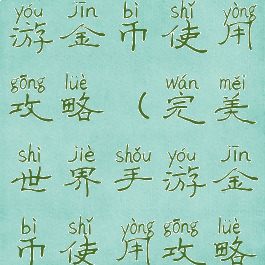 yóu jīn bì shǐ yòng
游金币使用
gōng lüè wán měi
攻略(完美
shì jiè shǒu yóu jīn
世界手游金
bì shǐ yòng gōng lüè
币使用攻略